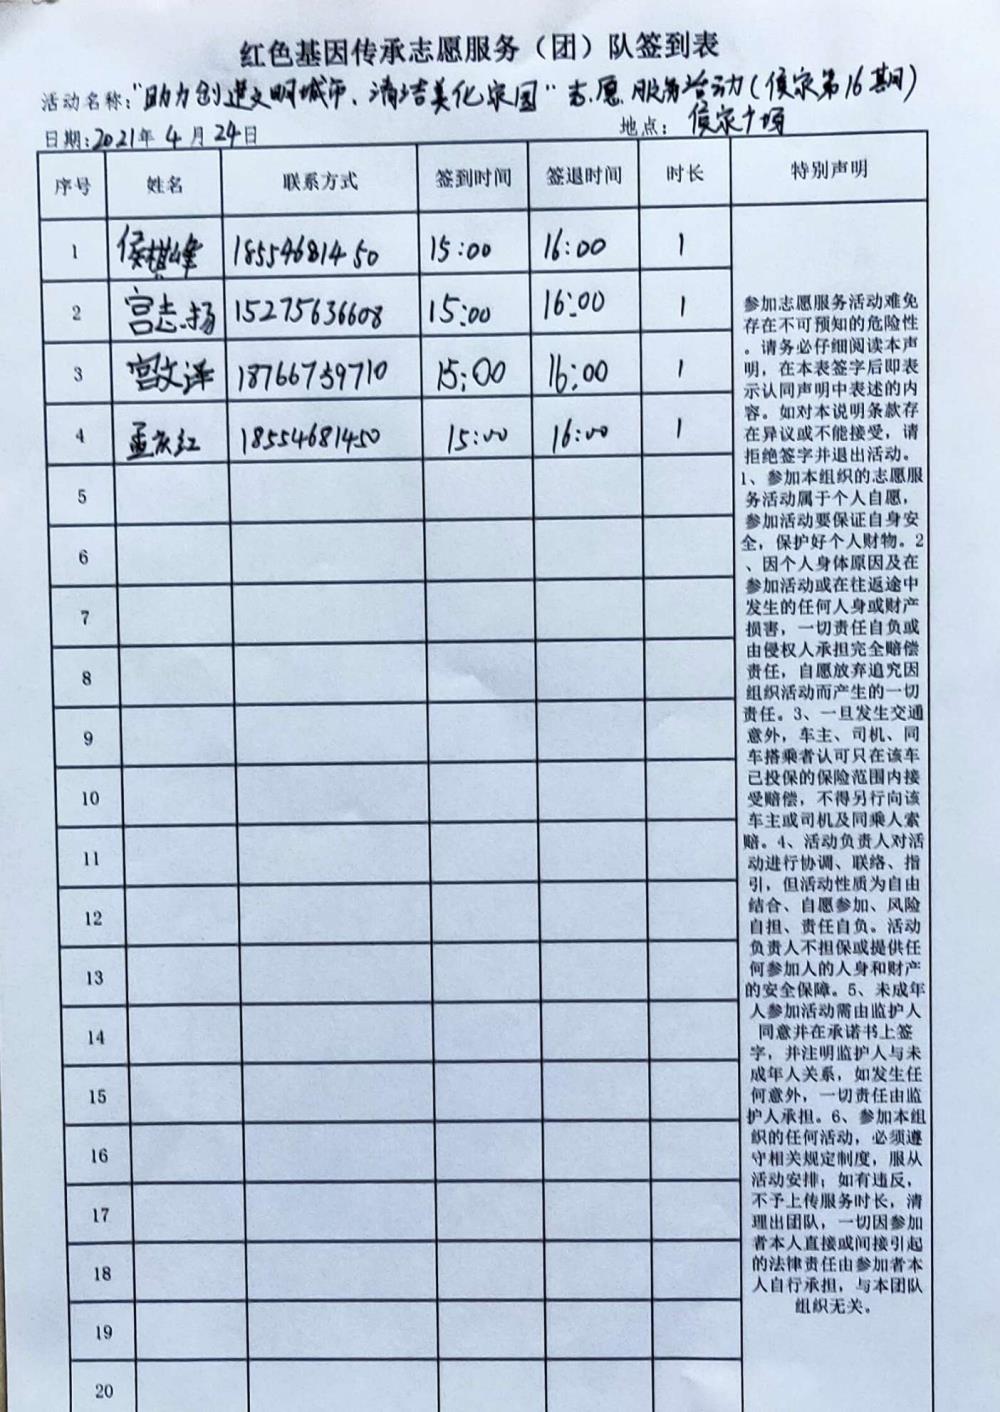 红色基因传承志愿服务（团）队签到表
活动名称："助力创建文明城市、清洁美化家园"志愿服务活动(侯家第16期)
日期:2021年 4 月 24日 地点： 侯家广场
序号 姓名 联系方式 签到时间 签退时间 时长 特别声明
1 侯棋峰 18554681450 15:00 16:00 1
2 宫志扬 15275636608 15:00 16:00 1
3 宫文泽 18766759710 15:00 16:00 1
4 孟庆红 18554681450 15:00 16:00 1
5
6
7
8
9
10
11
12
13
14
15
16
17
18
19
20
参加志愿服务活动难免
存在不可预知的危险性
。请务必仔细阅读本声
明，在本表签字后即表
示认同声明中表述的内
容。如对本说明条款存
在异议或不能接受，请
拒绝签字并退出活动。
1、参加本组织的志愿服
务活动属于个人自愿，
参加活动要保证自身安
全，保护好个人财物。2
、因个人身体原因及在
参加活动或在往返途中
发生的任何人身或财产
损害，一切责任自负或
由侵权人承担完全赔偿
责任，自愿放弃追究因
组织活动而产生的一切
责任。3、一旦发生交通
意外，车主、司机、同
车搭乘者认可只在该车
已投保的保险范围内接
受赔偿，不得另行向该
车主或司机及同乘人索
赔。4、活动负责人对活
动进行协调、联络、指
引，但活动性质为自由
结合、自愿参加、风险
自担、责任自负。活动
负责人不担保或提供任
何参加人的人身和财产
的安全保障。5、未成年
人参加活动需由监护人
同意并在承诺书上签
字，并注明监护人与未
成年人关系，如发生任
何意外，一切责任由监
护人承担。6、参加本组
织的任何活动，必须遵
守相关规定制度，服从
活动安排；如有违反，
不予上传服务时长，清
理出团队，一切因参加
者本人直接或间接引起
的法律责任由参加者本
人自行承担，与本团队
组织无关。